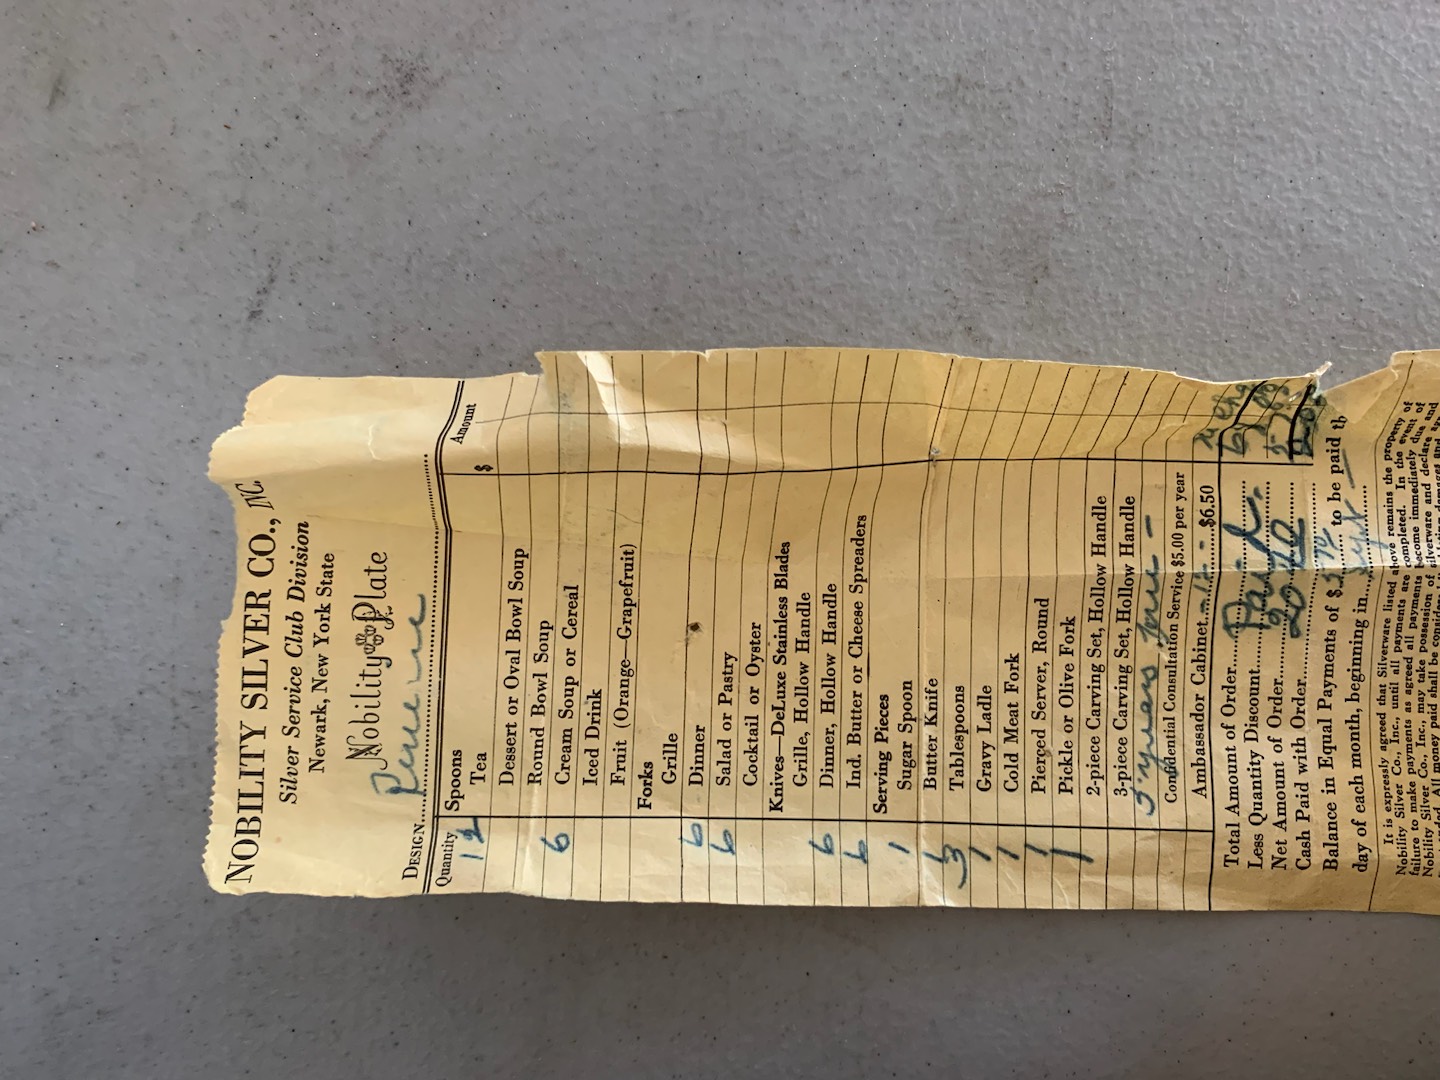 NOBILITY SILVER CO., INC.
Silver Service Club Division
Newark, New York State
Nobility Plate
DESIGN Reverie
Quantity Amount
Spoons $
12 Tea
Dessert or Oval Bowl Soup
Round Bowl Soup
6 Cream Soup or Cereal
Iced Drink
Fruit (Orange—Grapefruit)
Forks
Grille
6 Dinner
6 Salad or Pastry
Cocktail or Oyster
Knives—DeLuxe Stainless Blades
Grille, Hollow Handle
6 Dinner, Hollow Handle
6 Ind. Butter or Cheese Spreaders
Serving Pieces
1 Sugar Spoon
Butter Knife
3 Tablespoons
1 Gravy Ladle
1 Cold Meat Fork
1 Pierced Server, Round
1 Pickle or Olive Fork
2-piece Carving Set, Hollow Handle
3-piece Carving Set, Hollow Handle
3 years
Confidential Consultation Service $5.00 per year
Ambassador Cabinet $6.50
Total Amount of Order Paid
Less Quantity Discount
Net Amount of Order
Cash Paid with Order
Balance in Equal Payments of $ to be paid th
day of each month, beginning in Sept
It is expressly agreed that Silverware listed above remains the property of
Nobility Silver Co., Inc., until all payments are completed. In the event of
failure to make payments as agreed all payments become immediately due
Nobility Silver Co., Inc., may take possession of silverware and declare
All money paid shall be